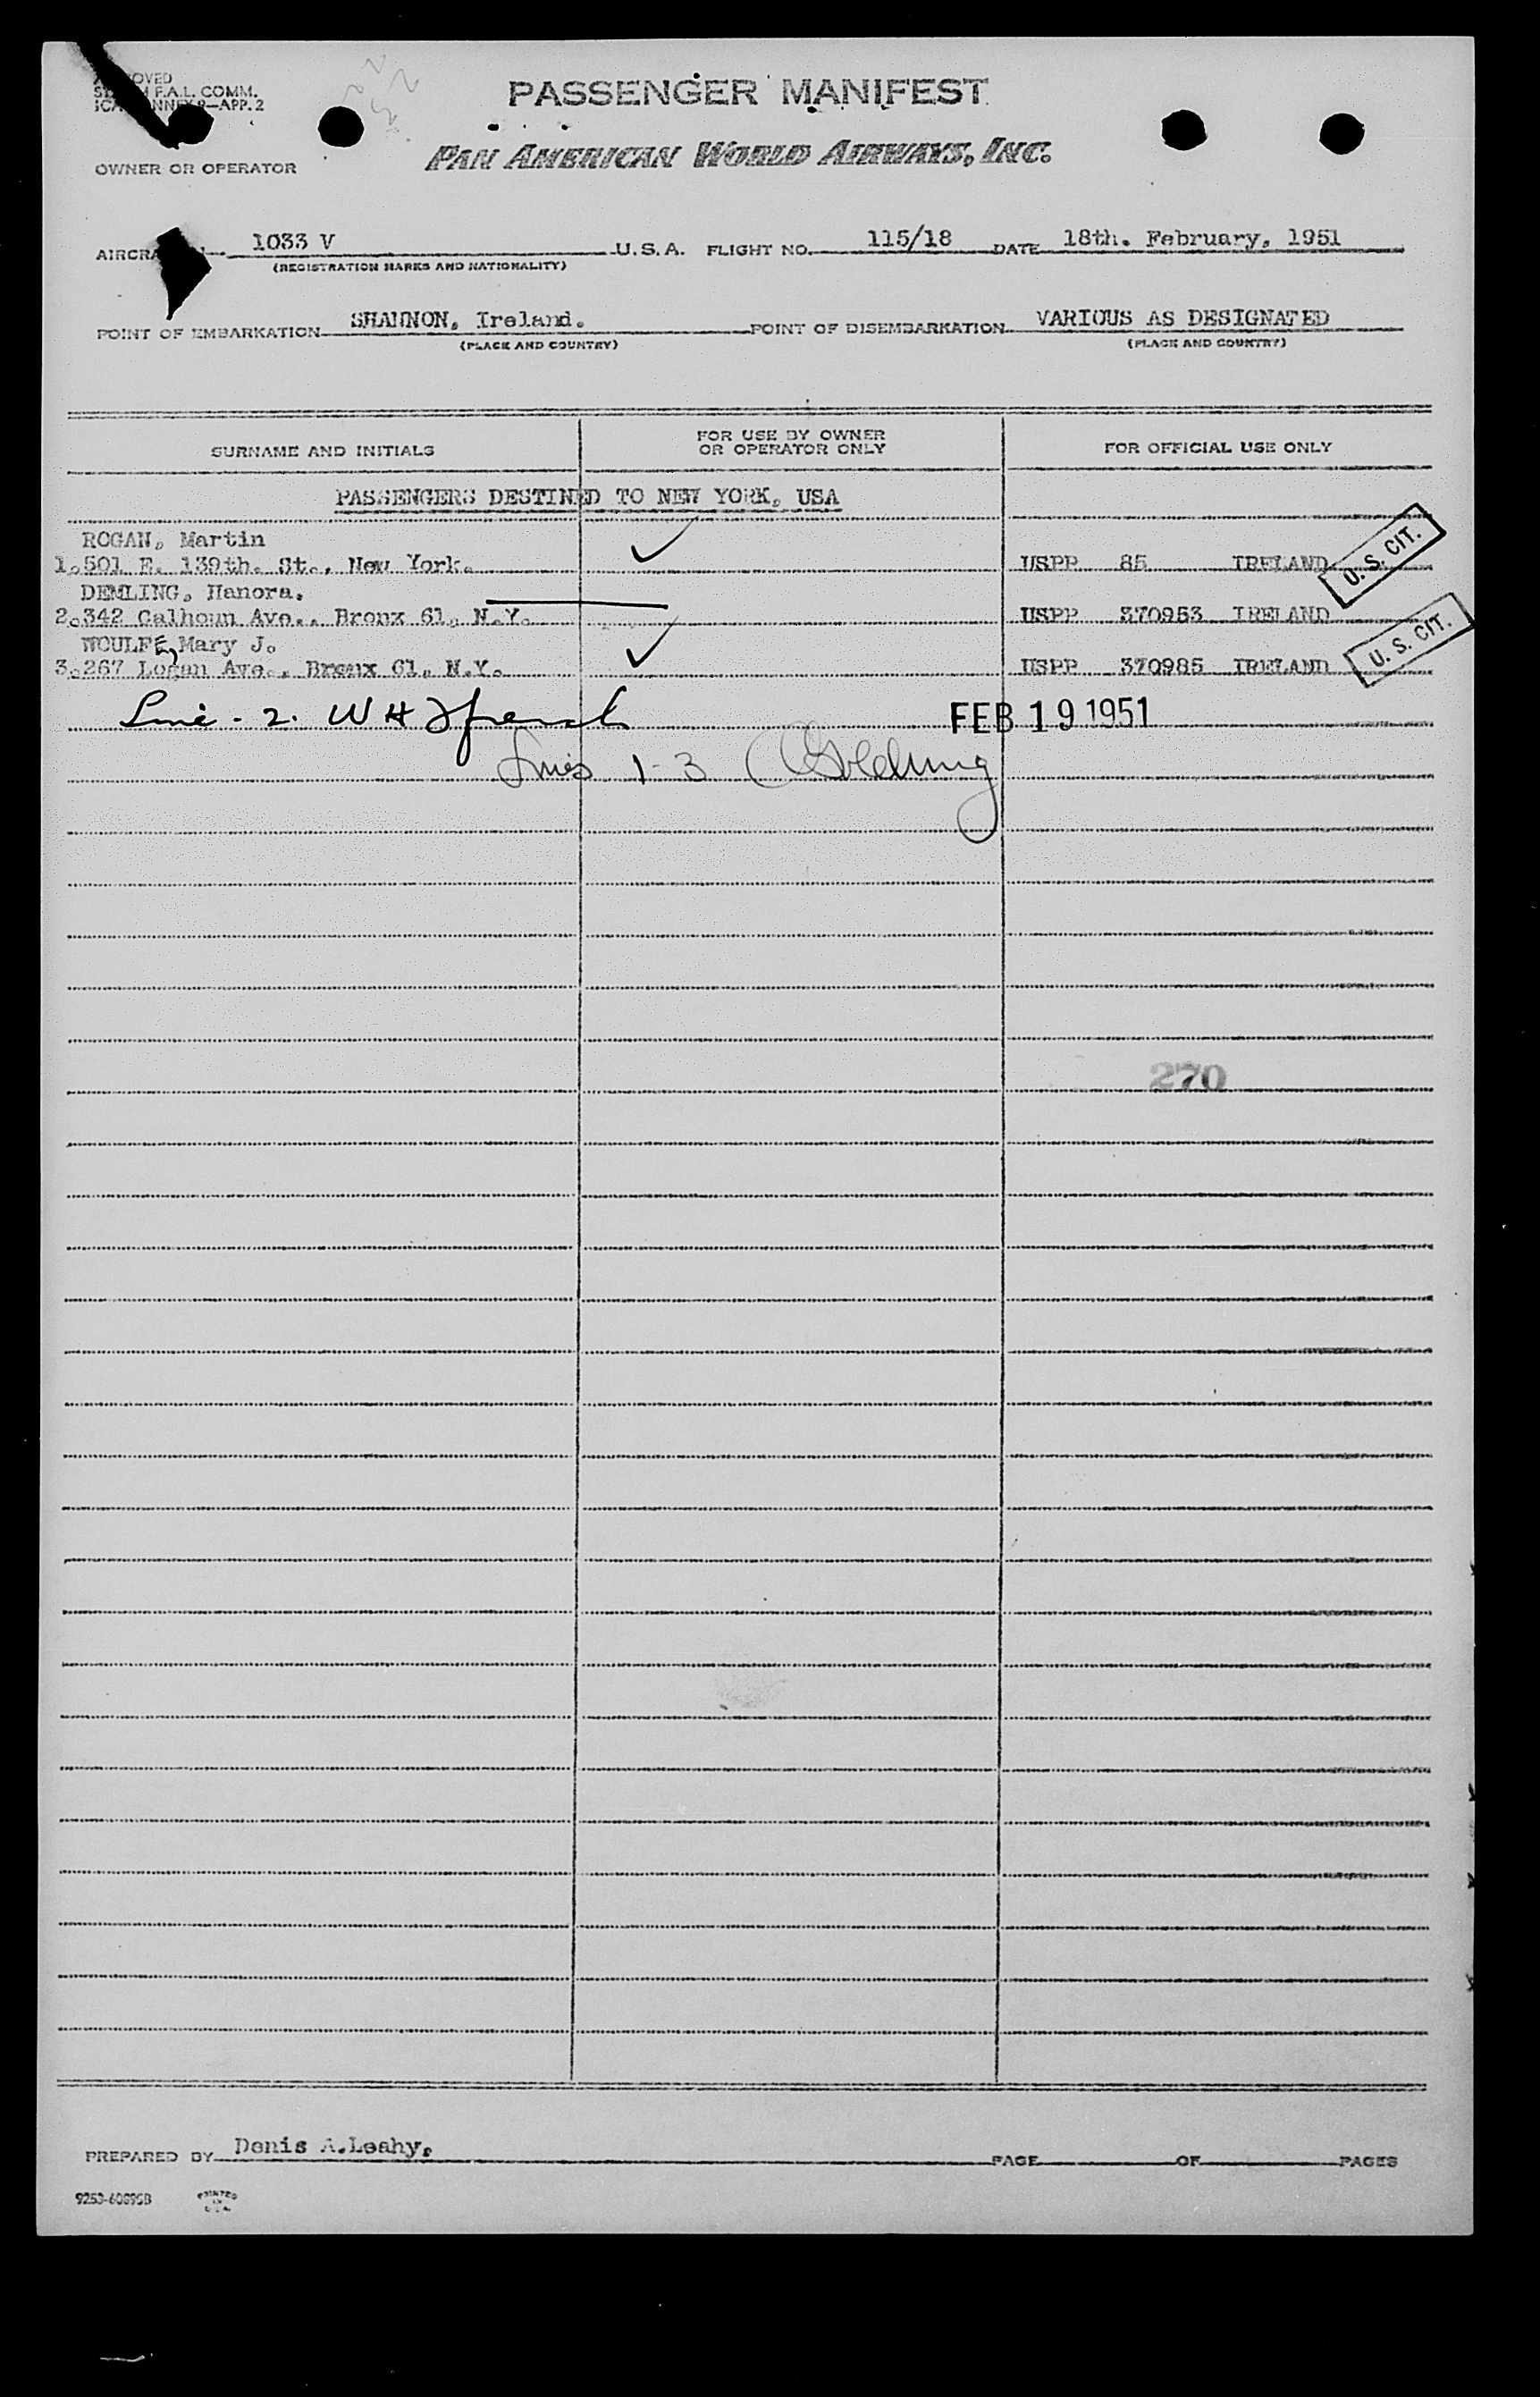 PASSENGER MANIFEST
F.A.L. COMM.
APP. 2
OWNER OR OPERATOR
PAN AMERICAN WORLD AIRWAYS, INC.
1033 V U.S.A. FLIGHT NO. 115/18 DATE 18th. February, 1951
(REGISTRATION MARKS AND NATIONALITY)
POINT OF EMBARKATION SHANNON, Ireland. POINT OF DISEMBARKATION VARIOUS AS DESIGNATED
(PLACE AND COUNTRY) (PLACE AND COUNTRY)
SURNAME AND INITIALS FOR USE BY OWNER OR OPERATOR ONLY FOR OFFICIAL USE ONLY
PASSENGERS DESTINED TO NEW YORK, USA
ROGAN, Martin
1.501 E. 139th. St., New York. USPP 85 IRELAND U. S. CIT.
DEMLING, Hanora.
2.342 Calhoun Ave., Bronx 61, N.Y. USPP 370953 IRELAND
WOULFE, Mary J.
3.267 Logan Ave., Bronx 61, N.Y. USPP 370985 IRELAND U. S. CIT.
Line - 2. W H
FEB 19 1951
Lines 1-3
270
PREPARED BY Denis A.Leahy, PAGE OF PAGES
PRINTED IN U.S.A.